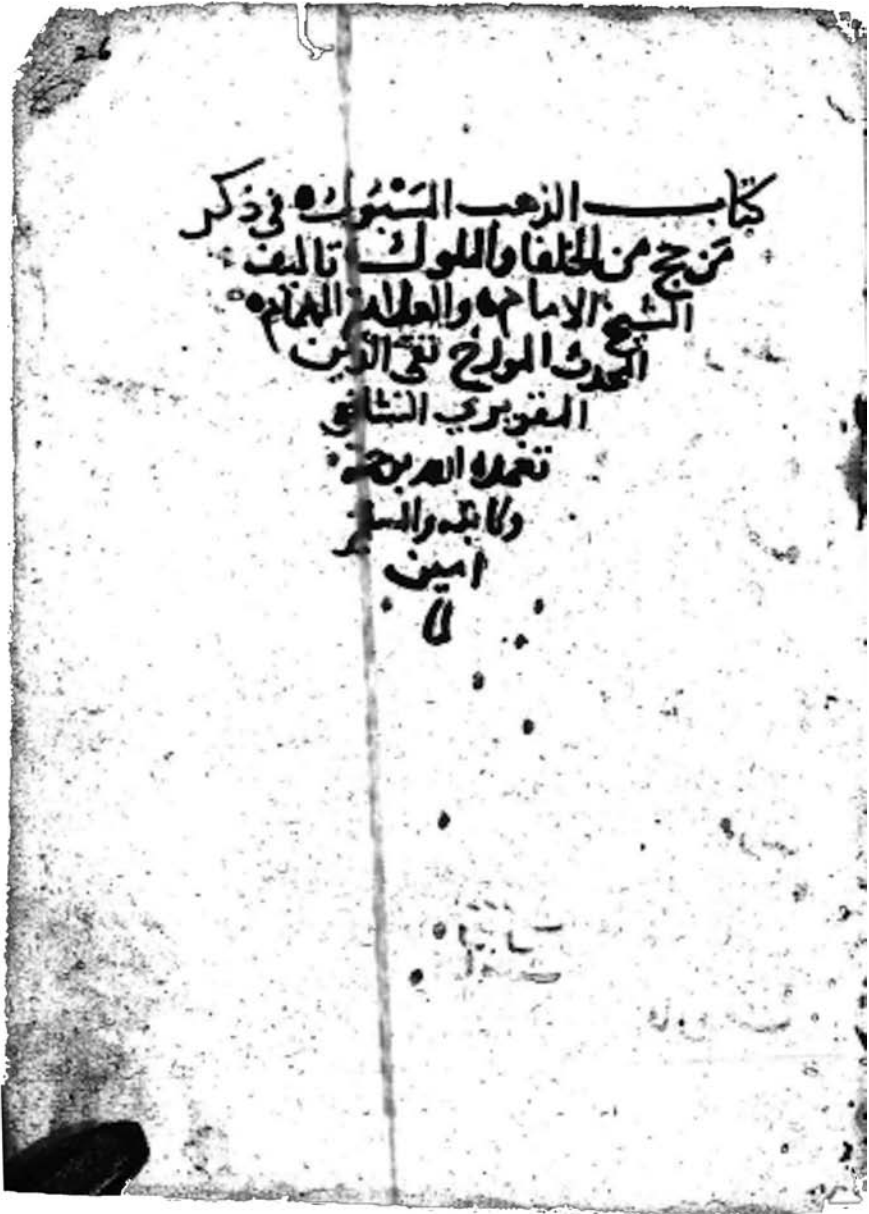 26
كتاب الذهب المسبوك في ذكر
من حج من الخلفا والملوك تاليف
الشيخ الامام والعلامة الهمام
المحدث المورخ تقي الدين
المقريزي الشافعي
تغمده الله برحمته
والمسلمين
امين